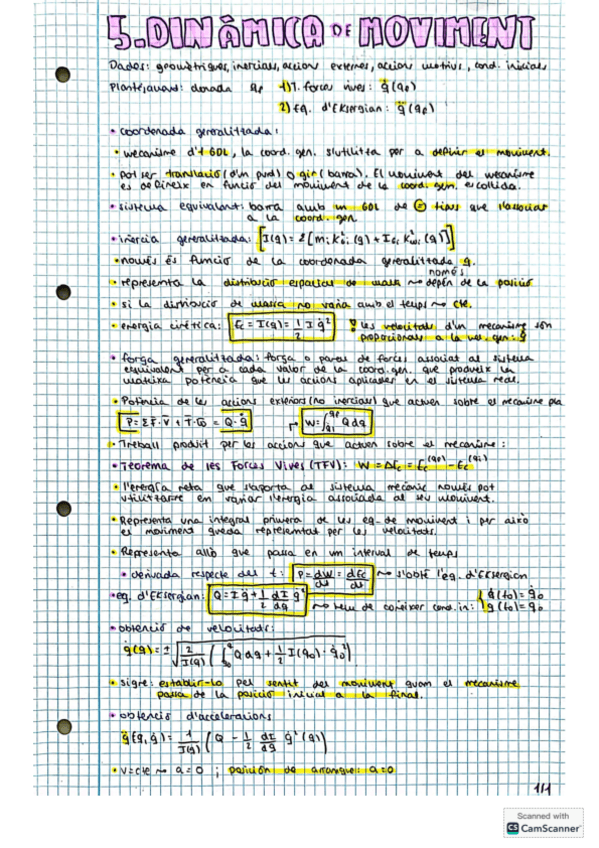 5. DINÀMICA DE MOVIMENT
Dades: geomètriques, inercials, accions externes, accions motrius, cond. inicials
Plantejament: donada q₀ → 1) T. forces vives: q̇(q₀)
2) Eq. d'Eksergian: q̈(q₀)
• coordenada generalitzada:
• mecanisme d'1 GDL, la coord. gen. s'utilitza per a definir el moviment.
• pot ser translació (d'un punt) o gir (barra). El moviment del mecanisme
es defineix en funció del moviment de la coord. gen. escollida.
• sistema equivalent: barra amb un GDL de tipus que l'associar
a la coord. gen
• inèrcia generalitzada: [I(q) = Σ[mᵢ K²ᵥᵢ(q) + I_Gᵢ K²ωᵢ(q)]]
• només és funció de la coordenada generalitzada q.
només
• representa la distribució espacial de massa → depèn de la posició
• si la distribució de massa no varia amb el temps → cte.
• energia cinètica: Ec = I(q) = 1/2 I q̇² ! Les velocitats d'un mecanisme són
proporcionals a la vel. gen: q̇
• força generalitzada: força o parell de forces associat al sistema
equivalent per a cada valor de la coord. gen. que produeix la
mateixa potència que les accions aplicades en el sistema real.
• Potència de les accions exteriors (no inercials) que actuen sobre el mecanisme
P = ΣF̄·V̄ + T̄·ω̄ = Q·q̇ → W = ∫ Q dq
• Treball produït per les accions que actuen sobre el mecanisme:
• Teorema de les Forces Vives (TFV): W = ΔEc = Ec(qf) − Ec(qi)
• l'energia neta que s'aporta al sistema mecànic només pot
utilitzar-se en variar l'energia associada al seu moviment.
• Representa una integral primera de les eq. de moviment i per això
es moviment queda representat per les velocitats.
• Representa allò que passa en un interval de temps
• derivada respecte del t: P = dW/dt = dEc/dt → s'obté l'eq. d'Eksergian
• eq. d'Eksergian: Q = I q̈ + 1/2 dI/dq q̇² → hem de conèixer cond. in: { q̇(t₀) = q̇₀
q(t₀) = q₀
• obtenció de velocitats:
q̇(q) = ± √(2/I(q) (∫ Q dq + 1/2 I(q₀)·q̇₀²))
• signe: establir-lo pel sentit del moviment quan el mecanisme
passa de la posició inicial a la final.
• obtenció d'acceleracions
q̈(q, q̇) = 1/I(q) (Q − 1/2 dI/dq q̇²(q))
• v=cte → a=0 ; posición de arranque: a=0
1/1
Scanned with
CS CamScanner